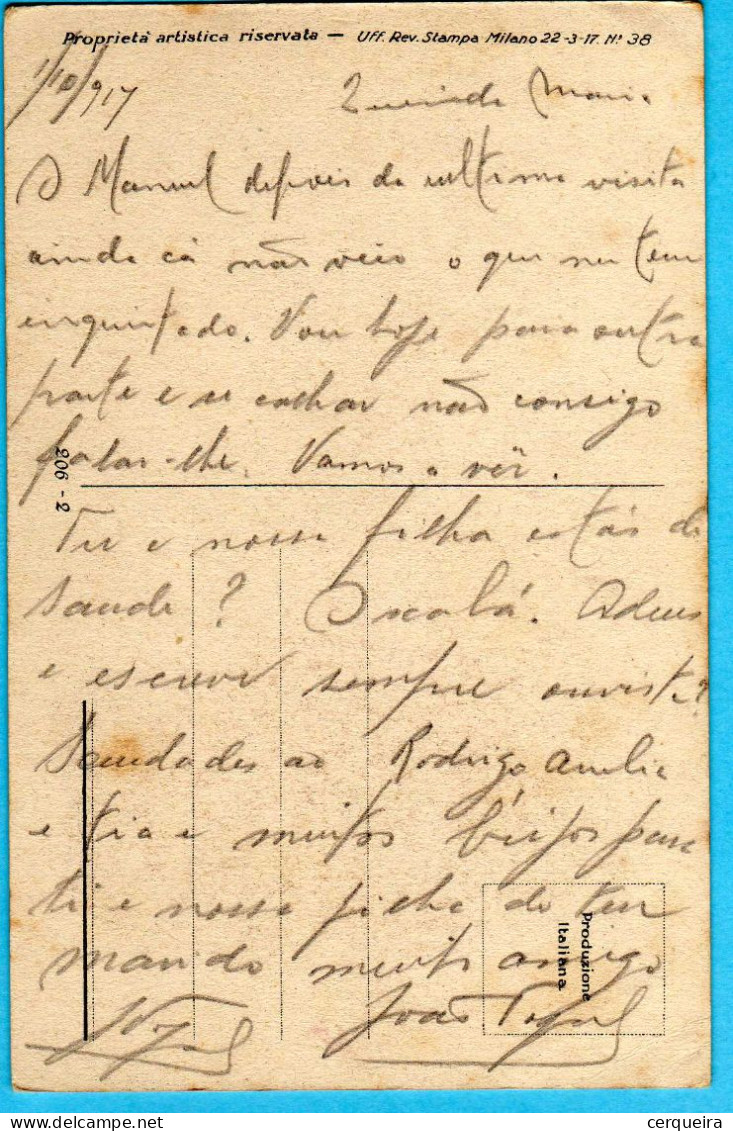 Proprietà artistica riservata — Uff. Rev. Stampa Milano 22-3-17. Nº 38
1/10/917
Querida Maria
O Manuel depois da ultima visita
ainda cá não veio o que me tem
inquietado. Vou hoje para outra
parte e se calhar não consigo
falar-lhe. Vamos a vêr.
206 - 2
Tu e nossa filha estás de
saude? Oxalá. Adeus
e escreve sempre ouviste?
Saudades ao Rodrigo Amelia
e tia e muitos beijos para
ti e nossa filha do teu
marido muito amigo
João
Produzione
Italiana
cerqueira